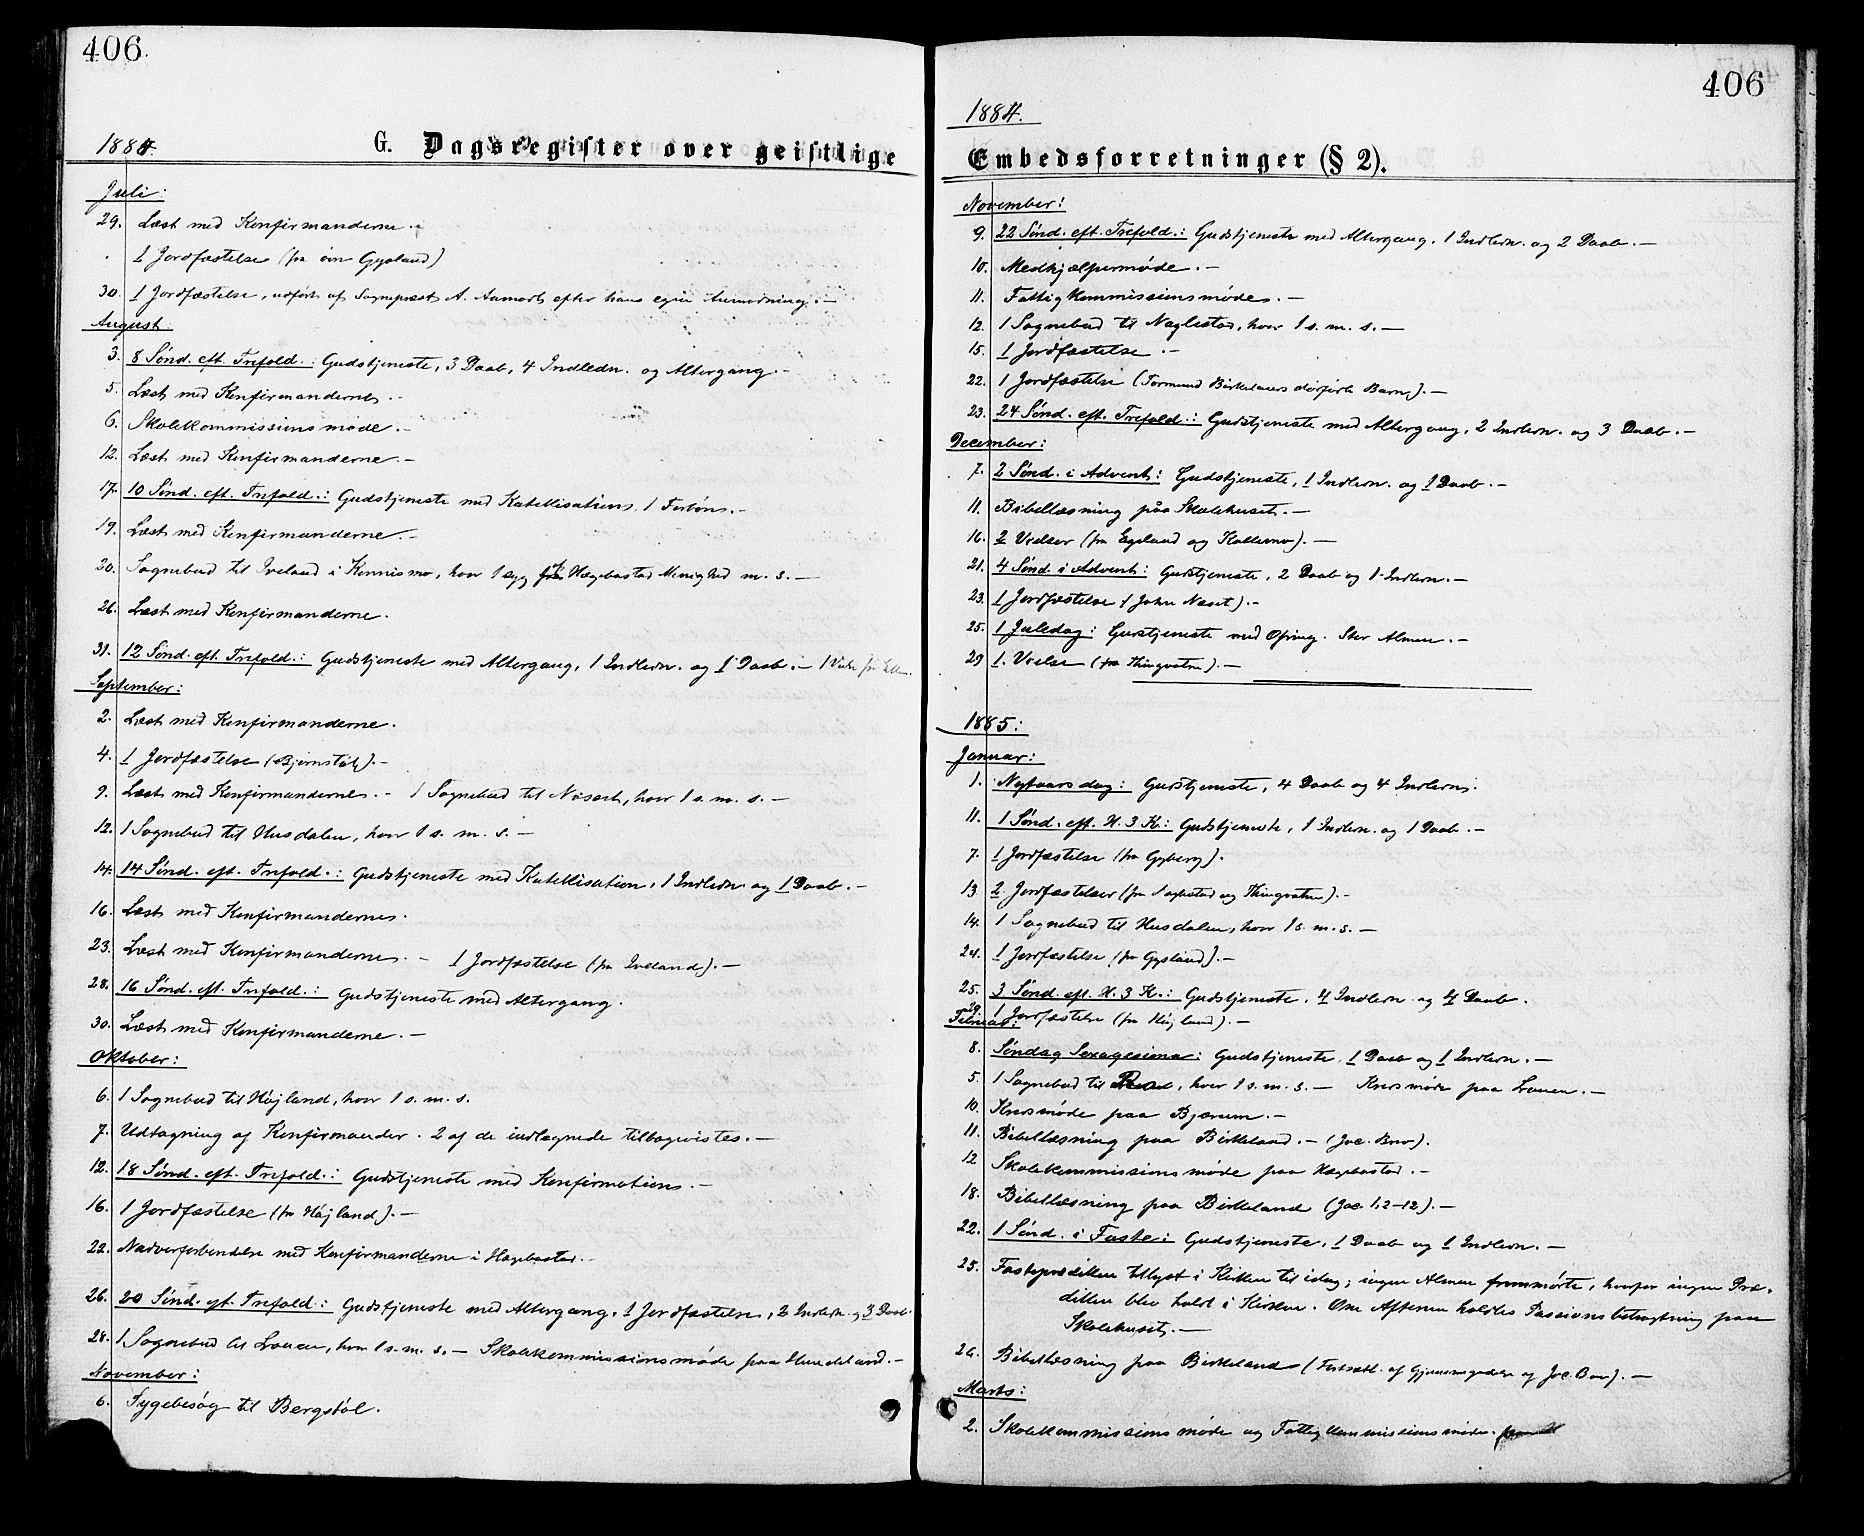 406.
1884.
G. Dagsregister over geistlige
Juli:
29. Læst med Konfirmanderne.
1 Jordfæstelse (fra Gysland)
30. 1 Jordfæstelse, udført af Sognepræst A. Aamodt efter hans egen Anmodning. —
August:
3. 8 Sønd. eft. Trefold.: Gudstjeneste, 3 Daab, 4 Indledn. og Altergang. —
5. Læst med Konfirmanderne. —
6. Skolekommissionsmøde. —
12. Læst med Konfirmanderne. —
17. 10 Sønd. eft. Trefold.: Gudstjeneste med Katekisation. 1 Forbøn. —
19. Læst med Konfirmanderne. —
20. Sognebud til Iveland i Kvinesmo, hvor 1 syg fra Hægebostad Menighed m. s. —
26. Læst med Konfirmanderne.
31. 12 Sønd. eft. Trefold.: Gudstjeneste med Altergang, 1 Indledn. og 1 Daab. — 1 Vielse
September:
2. Læst med Konfirmanderne.
4. 1 Jordfæstelse (Bjørnstøl). —
9. Læst med Konfirmanderne. — 1 Sognebud til Naset, hvor 1 s. m. s. —
12. 1 Sognebud til Husdalen, hvor 1 s. m. s. —
14. 14 Sønd. eft. Trefold.: Gudstjeneste med Katekisation, 1 Indledn. og 1 Daab. —
16. Læst med Konfirmanderne.
23. Læst med Konfirmanderne. — 1 Jordfæstelse (fra Iveland). —
28. 16 Sønd. eft. Trefold.: Gudstjeneste med Altergang.
30. Læst med Konfirmanderne. —
Oktober:
6. 1 Sognebud til Højland, hvor 1 s. m. s.
7. Udtagning af Konfirmander. 2 af de indtegnede tilbagevistes. —
12. 18 Sønd. eft. Trefold.: Gudstjeneste med Konfirmation. —
16. 1 Jordfæstelse (fra Højland). —
22. Nadverforberedelse med Konfirmanderne i Hægebostad. —
26. 20 Sønd. eft. Trefold.: Gudstjeneste med Altergang, 1 Jordfæstelse, 2 Indledn. og 3 Daab.
28. 1 Sognebud til Lauen, hvor 1 s. m. s. — Skolekommissionsmøde paa Hundeland. —
November:
6. Sygebesøg til Bergstøl.
406
1884.
Embedsforretninger (§ 2).
November:
9. 22 Sønd. eft. Trefold.: Gudstjeneste med Altergang, 1 Indledn. og 2 Daab. —
10. Medhjælpermøde. —
11. Fattigkommissionsmøde. —
12. 1 Sognebud til Naglestad, hvor 1 s. m. s. —
15. 1 Jordfæstelse. —
22. 1 Jordfæstelse (Tormund Birkelands dødfødte Barn). —
23. 24 Sønd. eft. Trefold.: Gudstjeneste med Altergang, 2 Indledn. og 3 Daab. —
December:
7. 2 Sønd. i Advent: Gudstjeneste, 1 Indledn. og 1 Daab. —
11. Bibellæsning paa Skolehuset. —
16. 2 Vielser (fra Egeland og Kollemo). —
21. 4 Sønd. i Advent: Gudstjeneste, 2 Daab og 1 Indledn. —
23. 1 Jordfæstelse (John Naset). —
25. 1 Juledag: Gudstjeneste med Ofring. Stor Almue. —
29. 1. Vielse (fra Thingvatne). —
1885:
Januar:
1. Nytaarsdag: Gudstjeneste, 4 Daab og 4 Indledn.
11. 1 Sønd. eft. H. 3 K.: Gudstjeneste, 1 Indledn. og 1 Daab. —
7. 1 Jordfæstelse (fra Gyberg).
13. 2. Jordfæstelser (fra Naglestad og Thingvatne). —
14. 1 Sognebud til Husdalen, hvor 1 s. m. s. —
24. 1 Jordfæstelse (fra Gysland). —
25. 3 Sønd. eft. H. 3 K.: Gudstjeneste, 4 Indledn. og 4 Daab.
29. 1 Jordfæstelse (fra Højland). —
Februar:
8. Søndag Sexagesima: Gudstjeneste, 1 Daab og 1 Indledn. —
5. 1 Sognebud til , hvor 1 s. m. s. — Kredsmøde paa Lauen. —
10. Kredsmøde paa Bjærum. —
11. Bibellæsning paa Birkeland. — (Jac. Brev).
12. Skolekommissionsmøde paa Hægebostad. —
18. Bibellæsning paa Birkeland (Jac. 1.2-12). —
22. 1 Sønd. i Faste: Gudstjeneste, 1 Daab og 1 Indledn. —
25. Fasteprædiken tillyst i Kirken til idag; ingen Almue fremmødte, hvorfor ingen Præ-
diken blev holdt i Kirken. Om Aftenen holdtes Passionsbetragtning paa
Skolehuset. —
26. Bibellæsning paa Birkeland (Fortsætt. af Gjennemgaaelse af Jac. Brev). —
Marts:
2. Skolekommissionsmøde og Fattigkommissionsmøde.